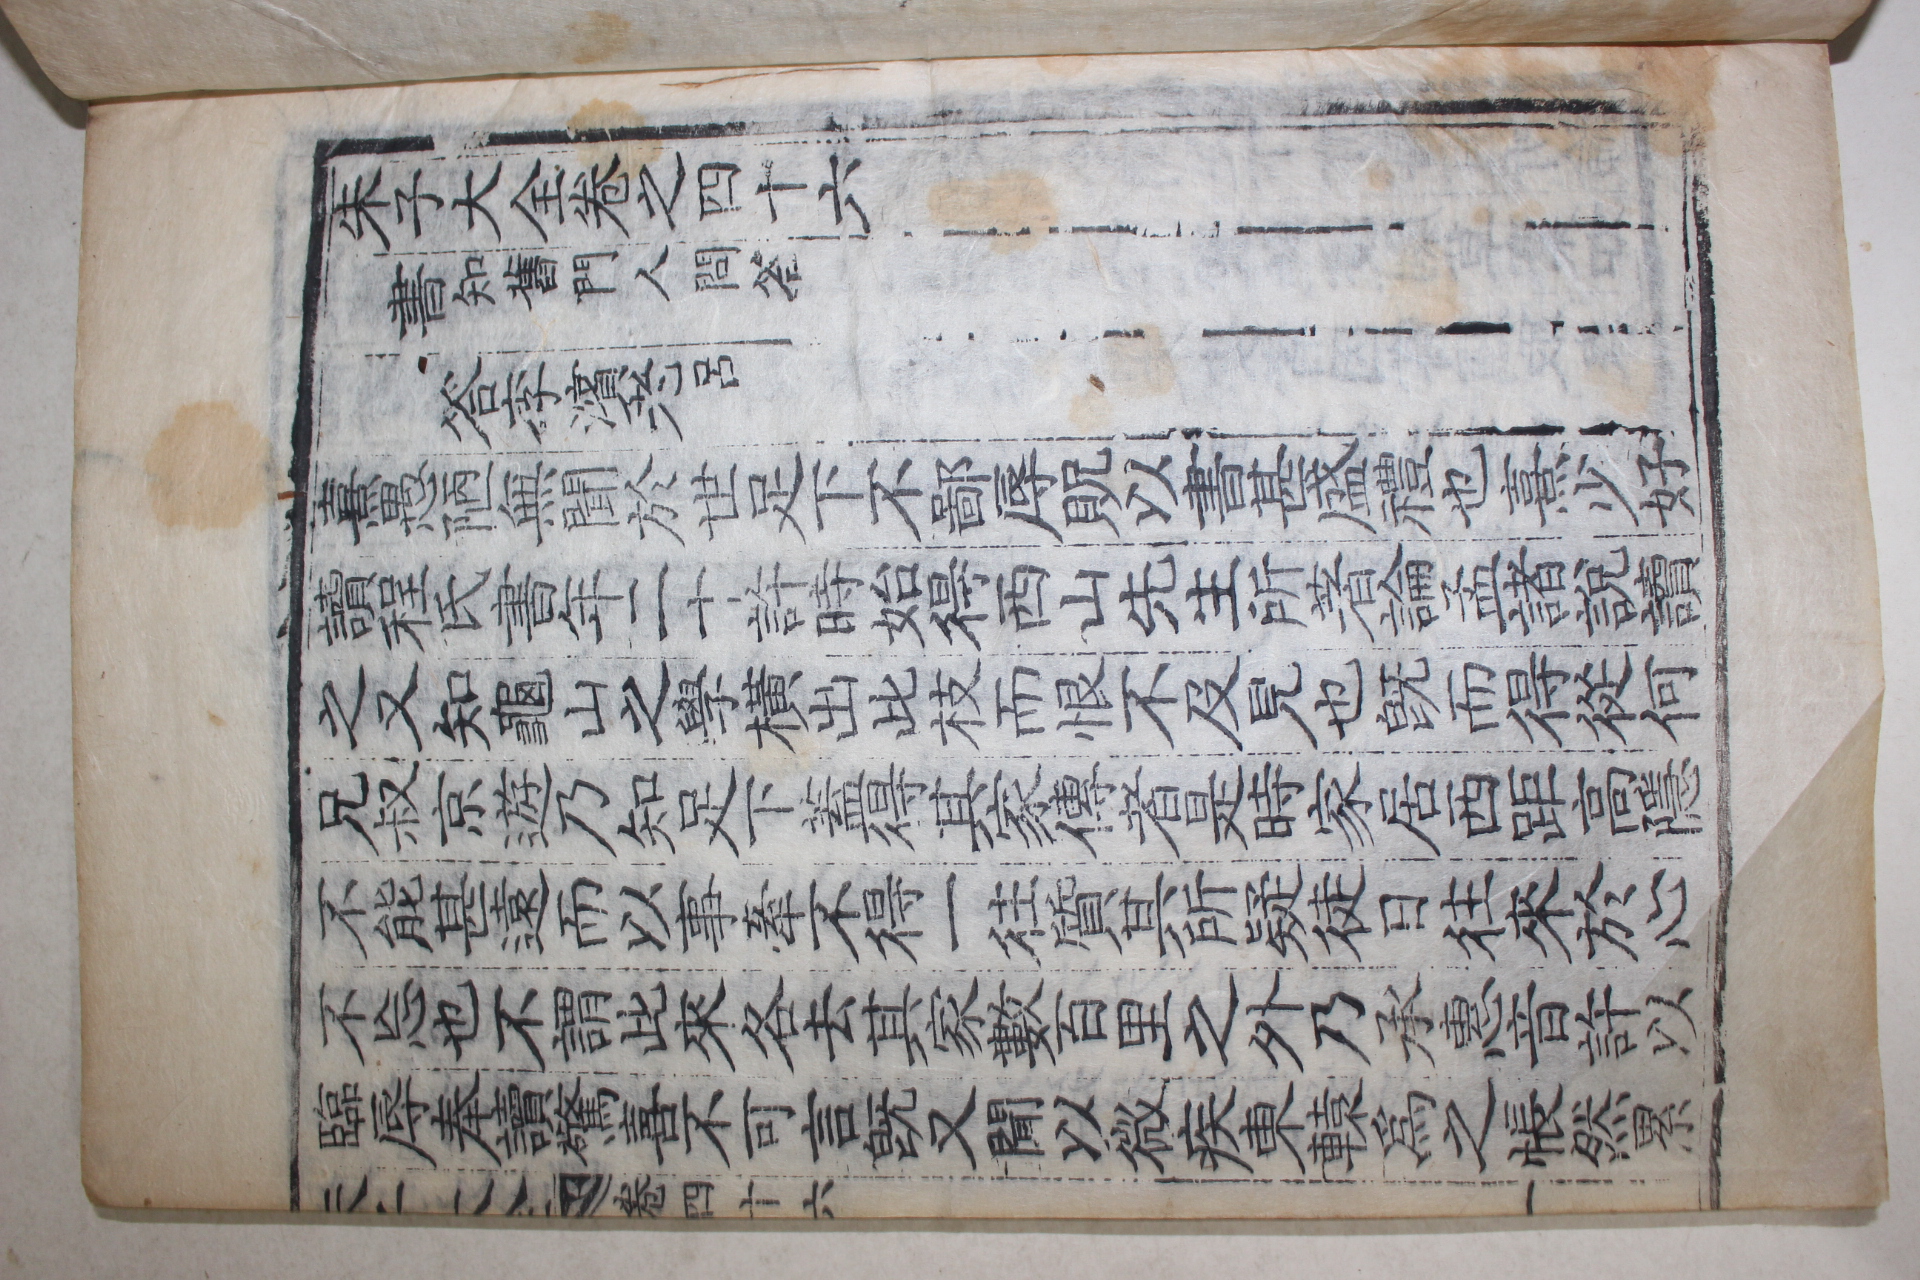 朱子大全卷之四十六
書知舊門人問答
答李濱老呂
熹愚陋無聞於世足下不鄙辱貺以書甚盛禮也熹少好
讀程氏書年二十許時始得西山先生所著論孟諸說讀
之又知龜山之學橫出此枝而恨不及見也旣而得從何
兄叔京遊乃知足下蓋得其家傳者是時家居西距高隱
不能甚遠而以事牽不得一往質其所疑徒日往來於心
不忘也不謂此來各去其家數百里之外乃承惠音許以
臨辱奉讀驚喜不可言旣又聞以微疾東轅爲之悵然累
朱子大全 卷四十六 一